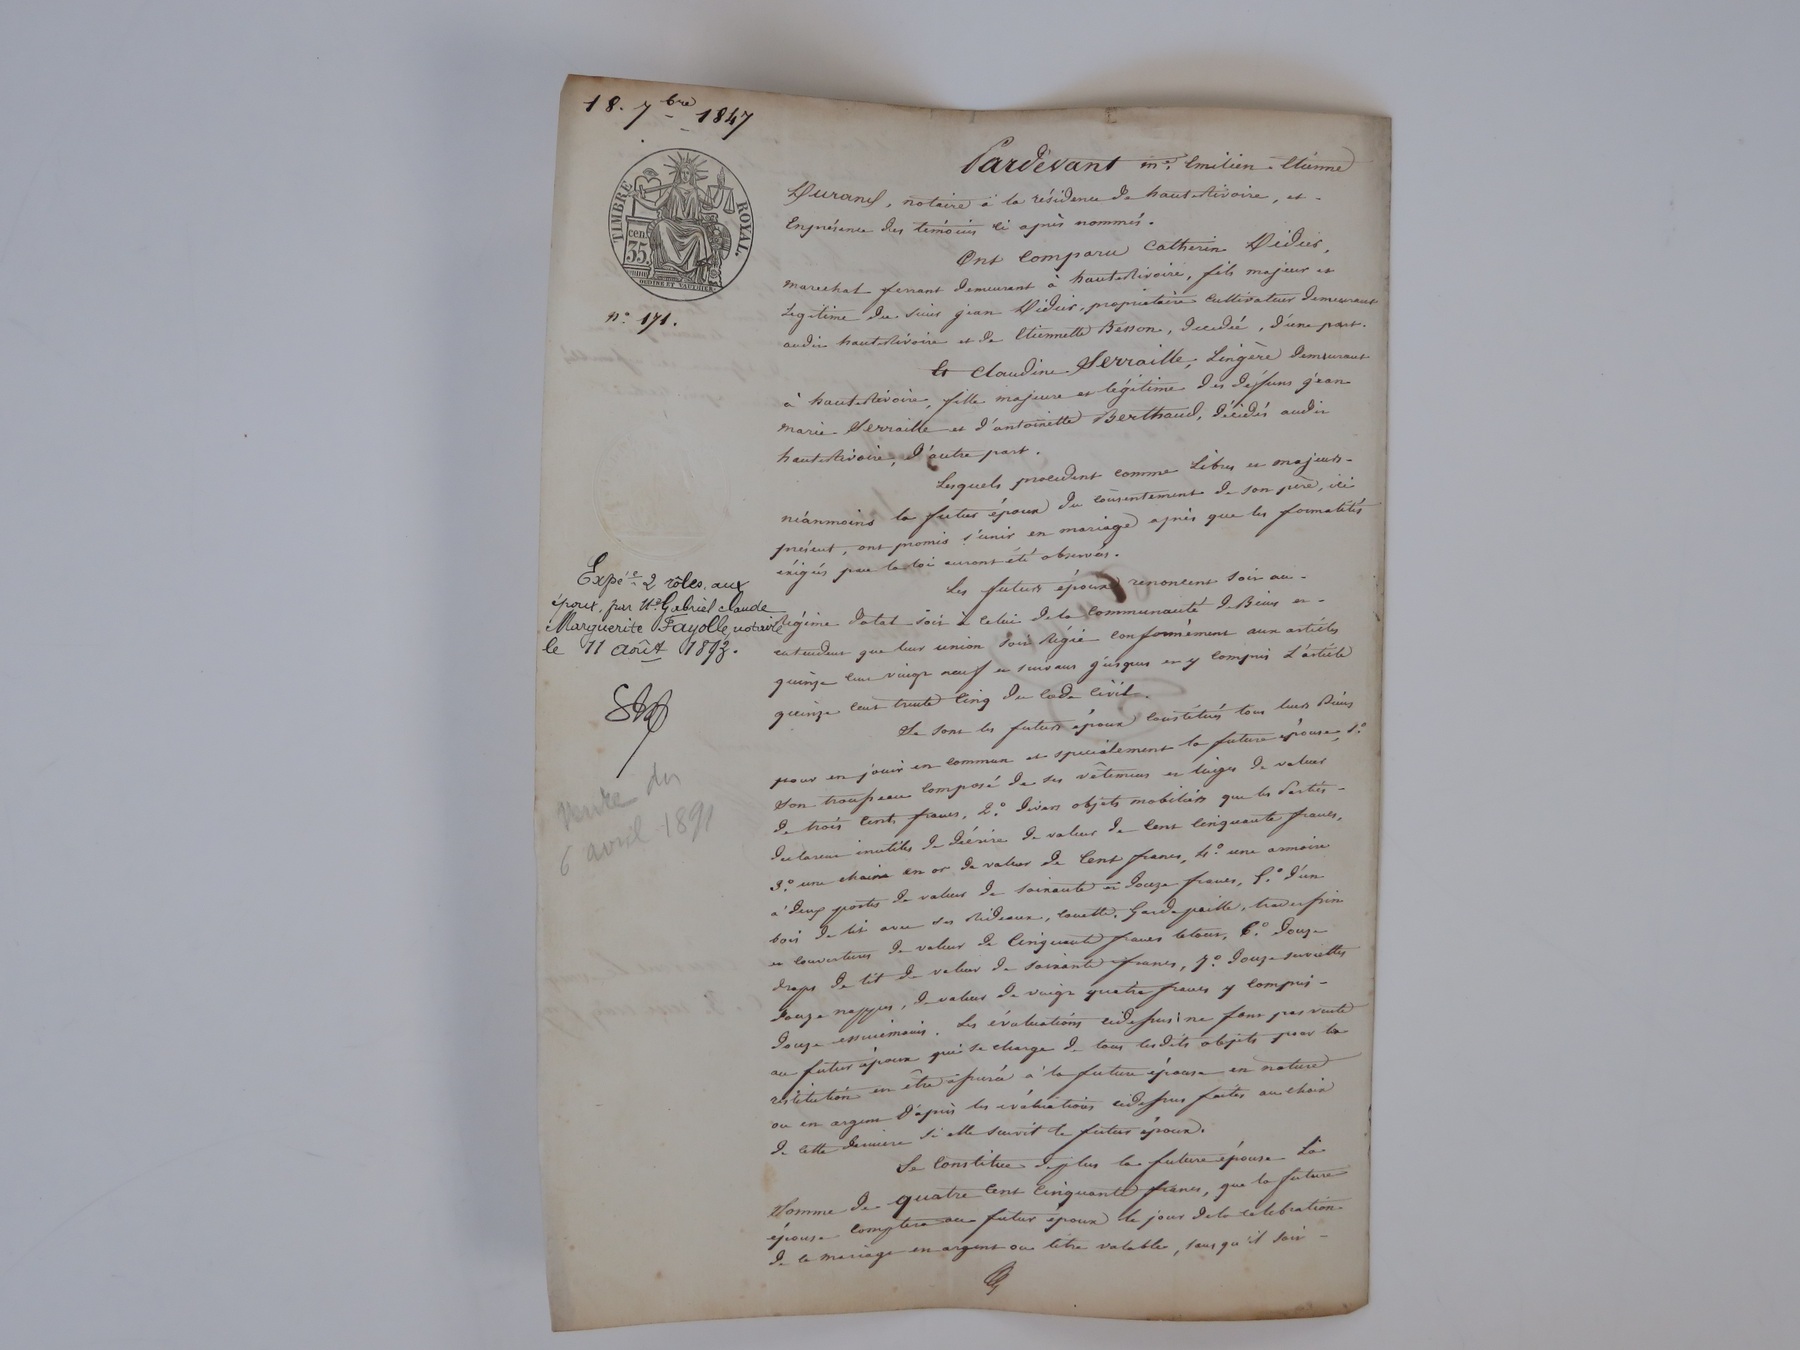 18. 7bre 1847
TIMBRE ROYAL.
cen.
35.
N° 171.
Expé.e 2 rôles, aux
époux, par Me Gabriel Claude
Marguerite Fayolle, notaire
le 11 août 1893.
vente du
6 avril 1891
Pardevant me. Emilien Etienne
Durand, notaire à la résidence de hauteRivoire, et
Enprésence des témoins ci après nommés.
Ont comparu Catherin Didier,
marechal ferrant demeurant à hauteRivoire, fils majeur et
Légitime du sieur jean Didier, propriétaire cultivateur demeurant
audit hauteRivoire et de Etiennette Besson, décédée, d'une part.
Et Claudine Serraille, Lingère demeurant
à hauteRivoire, fille majeure et légitime des défuns jean
marie Serraille et d'antoinette Berthaud, décédés audit
hauteRivoire, d'autre part.
Lesquels procédent comme Libres et majeurs
néanmoins le futur époux du consentement de son père, ici
présent, ont promis s'unir en mariage après que les formalités
éxigées par la loi auront été observées.
Les futurs époux renoncent soit au
Régime dotal soit à celui dela communauté de Biens et
entendent que leur union soit Régie conformément aux articles
quinze cent vingt neuf et suivans jusques et y compris L'article
quinze cent trente cinq du Code Civil.
Se sont les futurs époux constitués tous leurs Biens
pour en jouir en commun et spécialement la future épouse, 1°
Son trousseau composé de ses vêtemens et linges de valeur
de trois cents francs, 2° divers objets mobiliers que les Parties
déclarent inutiles de décrire de valeur de cent cinquante francs,
3° une chaine en or de valeur de Cent francs, 4° une armoire
à deux portes de valeur de soixante et douze francs, 5° d'un
bois de lit avec ses Rideaux, couette, Gardepaille, traverssin
et couvertures de valeur de Cinquante francs letout, 6° douze
draps de lit de valeur de soixante francs, 7° douze serviettes
douze nappes, de valeur de vingt quatre francs y compris
douze essuiemains. Les évaluations cidessus ne font pas vente
au futur époux qui se charge de tous lesdits objets pour la
restitution en être à la future épouse en nature
ou en argent d'après les évaluations cidessus faites au choix
de cette dernière si elle survit le futur époux.
Se Constitue deplus la future épouse La
Somme de quatre cent cinquante francs, que la future
épouse comptera au futur époux le jour dela célébration
de le mariage en argent ou titre valable, sans qu'il soit